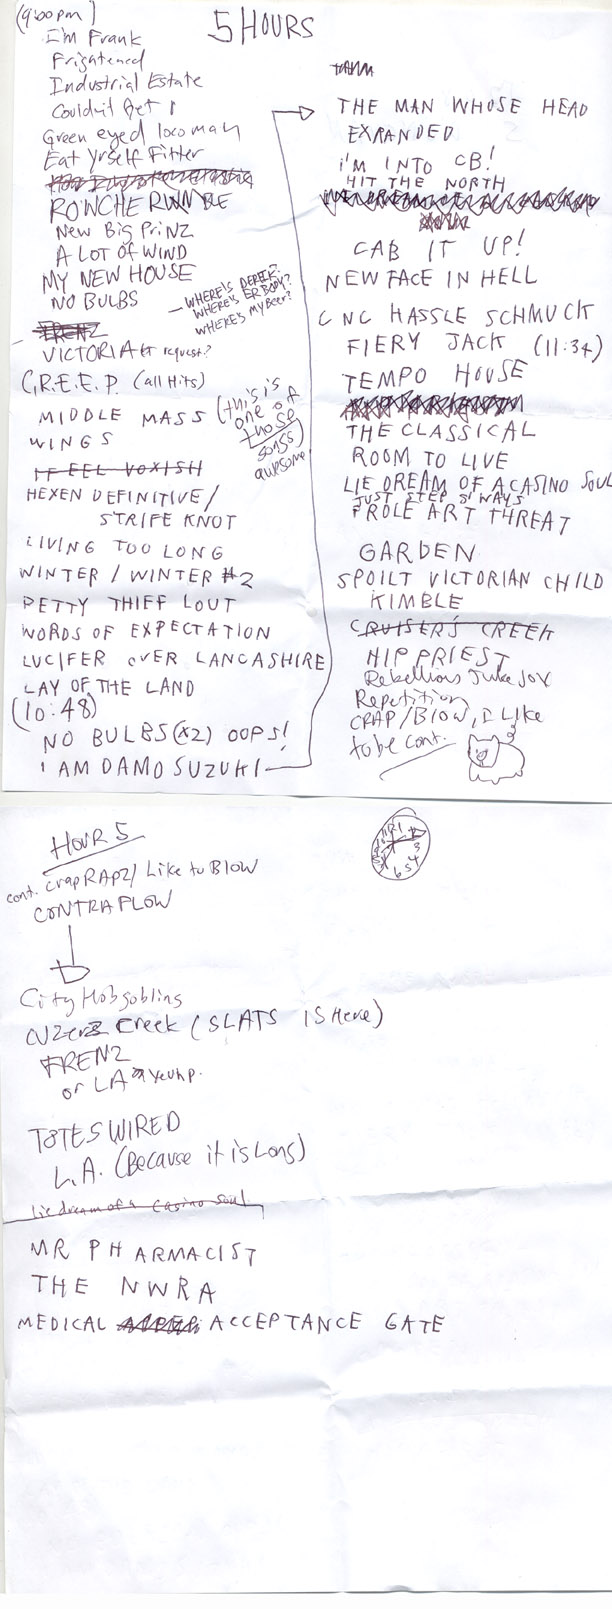 (9:00pm)
5 HOURS
I'm Frank
Frightened
Industrial Estate
Couldn't Get
Green eyed loco man
Eat Yrself Fitter
ROWCHE RUMBLE
New Big PrinZ
A LOT OF WIND
MY NEW HOUSE
NO BULBS
WHERE'S DEREK?
WHERE'S ERBODY?
WHERE'S MY BEER?
FRENZ
VICTORIA request?
C.R.E.E.P. (all Hits)
MIDDLE MASS
(this is
one of
those
songs)
awesome
WINGS
HEXEN DEFINITIVE/
STRIFE KNOT
LIVING TOO LONG
WINTER / WINTER #2
PETTY THIEF LOUT
WORDS OF EXPECTATION
LUCIFER OVER LANCASHIRE
LAY OF THE LAND
(10:48)
NO BULBS (x2) OOPS!
I AM DAMO SUZUKI
THE MAN WHOSE HEAD
EXPANDED
i'M INTO CB!
HIT THE NORTH
CAB IT UP!
NEW FACE IN HELL
CNC HASSLE SCHMUCK
FIERY JACK (11:34)
TEMPO HOUSE
THE CLASSICAL
ROOM TO LIVE
LIE DREAM OF A CASINO SOUL
JUST STEP S'WAYS
PROLE ART THREAT
GARDEN
SPOILT VICTORIAN CHILD
KIMBLE
CRUISER'S CREEK
HIP PRIEST
Rebellious Juke Jox
Repetition
CRAP/Blow, I Like
to be cont.
HOUR 5
cont. Crap RAP2/ Like to BLOW
CONTRAFLOW
City Hobgoblins
CUZerz Creek (SLATS IS Here)
FRENZ
or LA
TOTES WIRED
L.A. (Because it is Long)
Lie dream of a Casino Soul
MR PHARMACIST
THE NWRA
MEDICAL ACCEPTANCE GATE